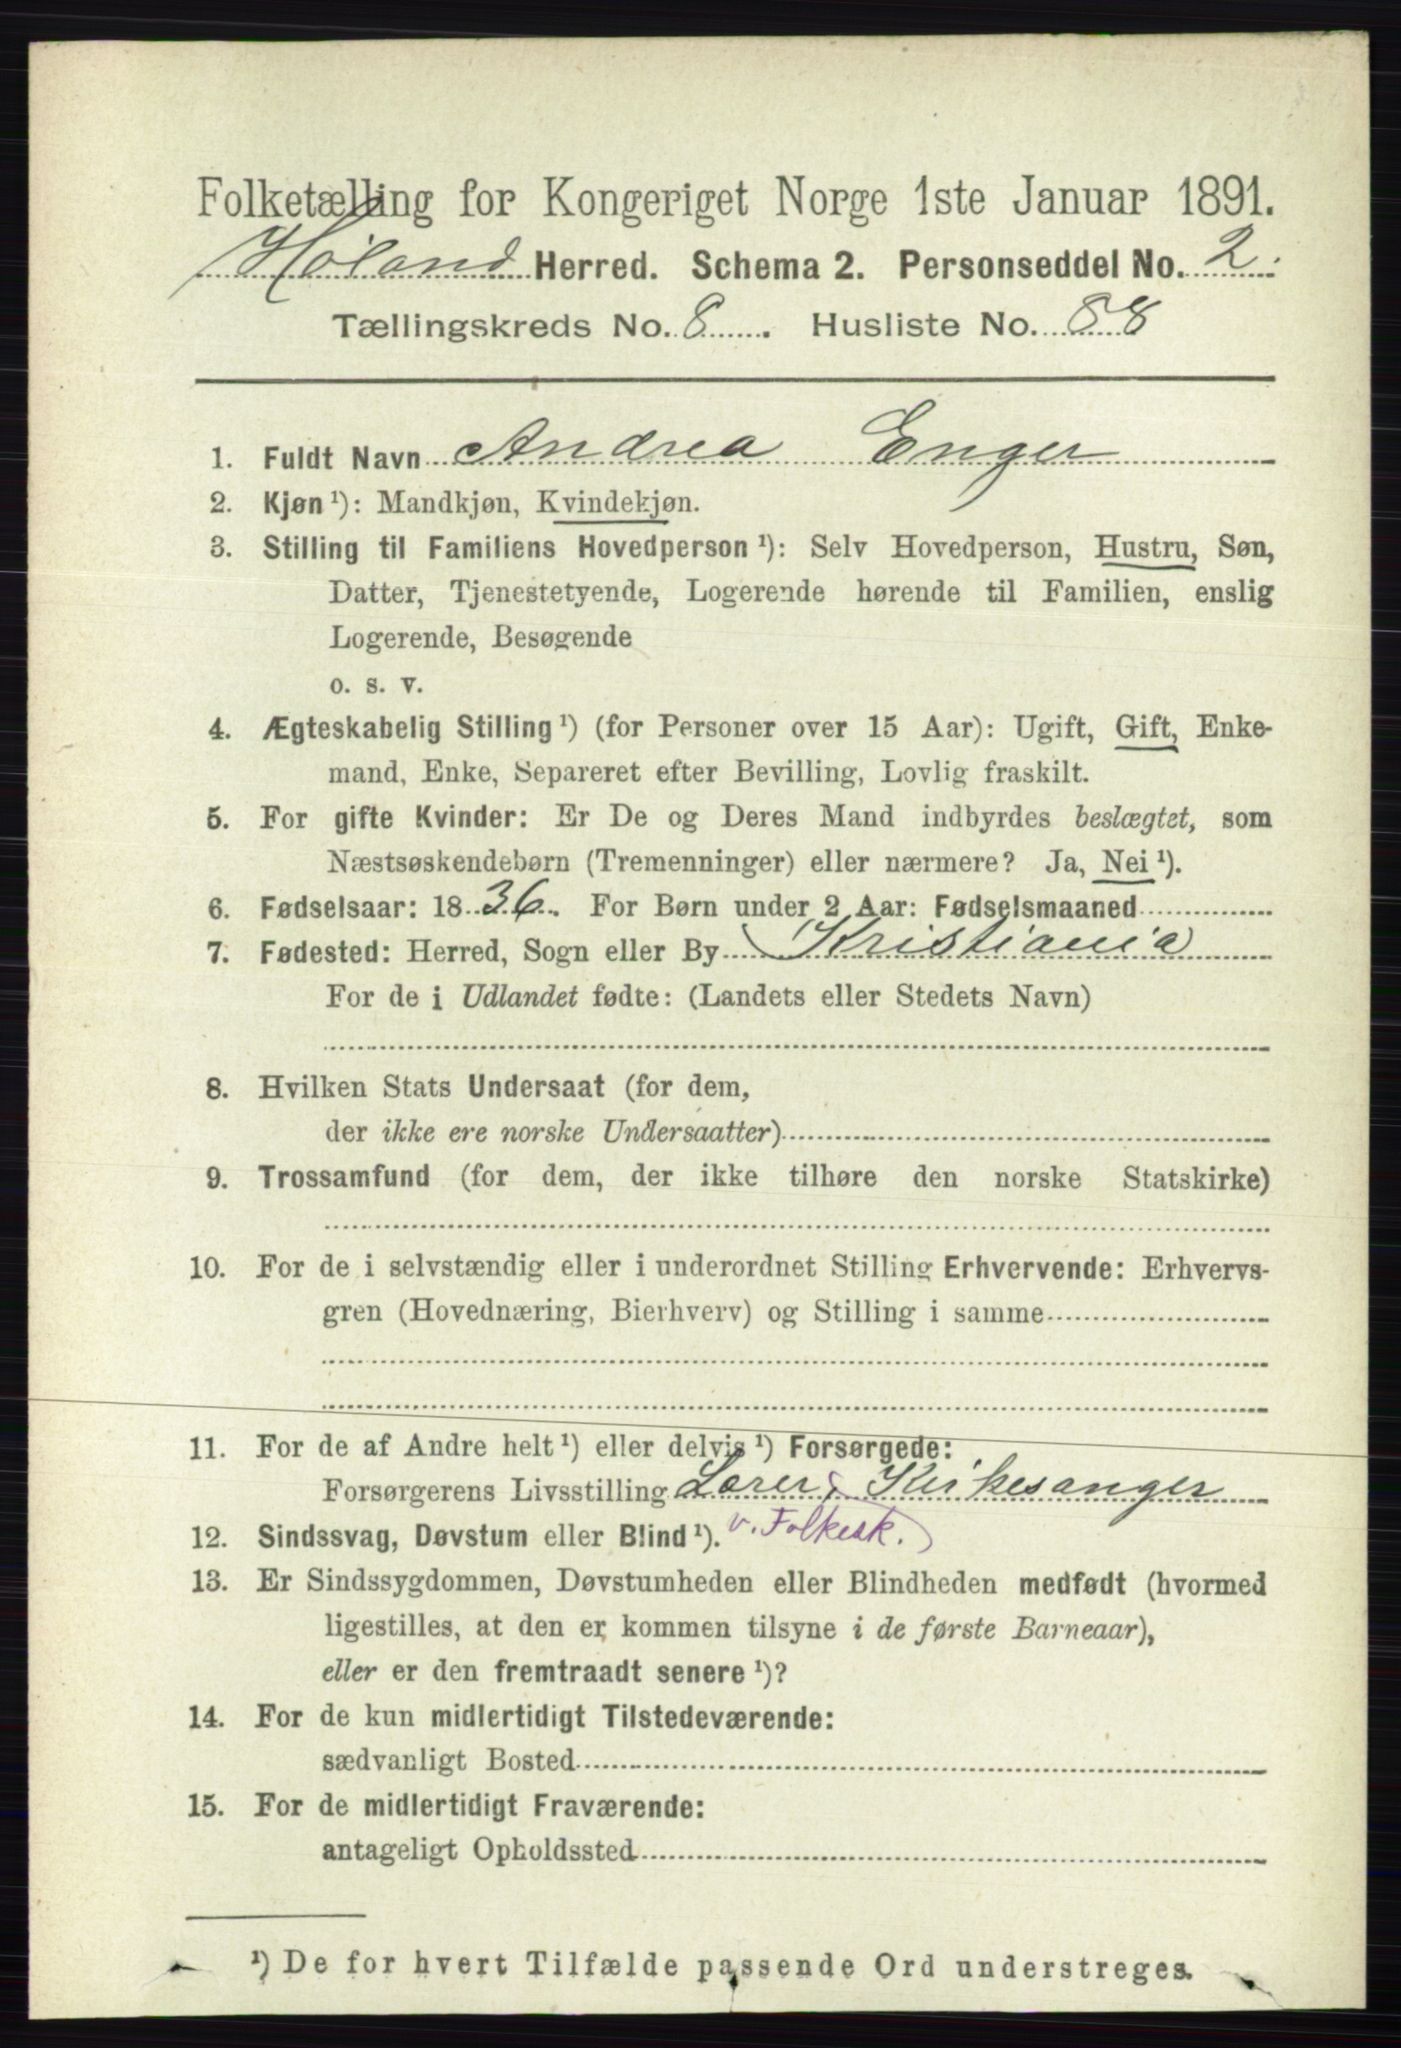 Folketælling for Kongeriget Norge 1ste Januar 1891.
Høland Herred. Schema 2. Personseddel No. 2.
Tællingskreds No. 8. Husliste No. 88
1. Fuldt Navn Andrea Enger
2. Kjøn¹): Mandkjøn, Kvindekjøn.
3. Stilling til Familiens Hovedperson¹): Selv Hovedperson, Hustru, Søn,
Datter, Tjenestetyende, Logerende hørende til Familien, enslig
Logerende, Besøgende
o. s. v.
4. Ægteskabelig Stilling¹) (for Personer over 15 Aar): Ugift, Gift, Enke-
mand, Enke, Separeret efter Bevilling, Lovlig fraskilt.
5. For gifte Kvinder: Er De og Deres Mand indbyrdes beslægtet, som
Næstsøskendebørn (Tremenninger) eller nærmere? Ja, Nei¹).
6. Fødselsaar: 1836. For Børn under 2 Aar: Fødselsmaaned
7. Fødested: Herred, Sogn eller By Kristiania
For de i Udlandet fødte: (Landets eller Stedets Navn)
8. Hvilken Stats Undersaat (for dem,
der ikke ere norske Undersaatter)
9. Trossamfund (for dem, der ikke tilhøre den norske Statskirke)
10. For de i selvstændig eller i underordnet Stilling Erhvervende: Erhvervs-
gren (Hovednæring, Bierhverv) og Stilling i samme
11. For de af Andre helt¹) eller delvis¹) Forsørgede:
Forsørgerens Livsstilling Lærer, Kirkesanger
v. Folkesk.
12. Sindssvag, Døvstum eller Blind¹).
13. Er Sindssygdommen, Døvstumheden eller Blindheden medfødt (hvormed
ligestilles, at den er kommen tilsyne i de første Barneaar),
eller er den fremtraadt senere¹)?
14. For de kun midlertidigt Tilstedeværende:
sædvanligt Bosted
15. For de midlertidigt Fraværende:
antageligt Opholdssted
¹) De for hvert Tilfælde passende Ord understreges.